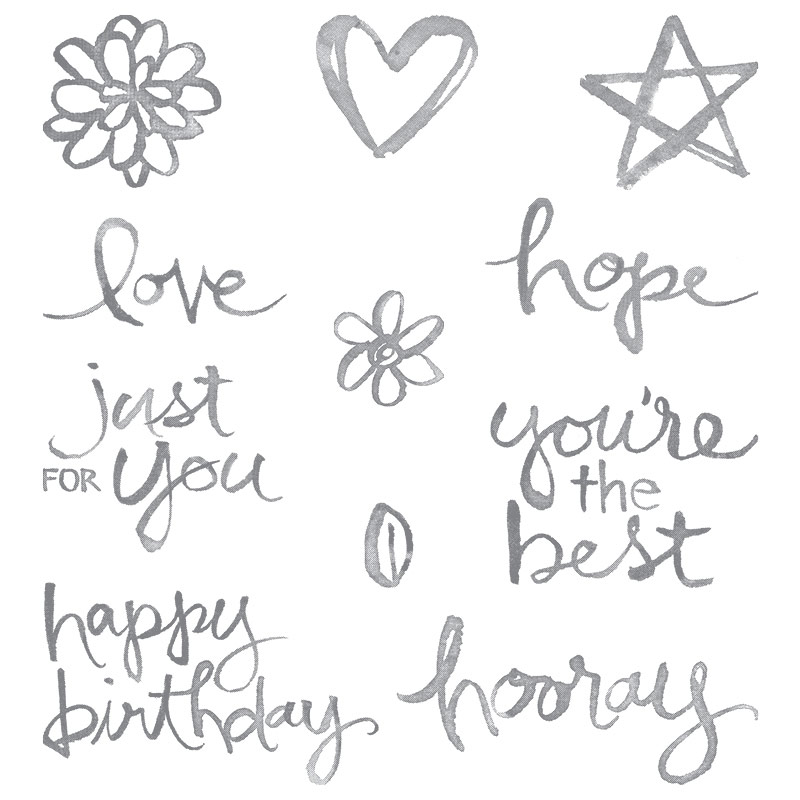 love
hope
just
FOR you
you're
the
best
happy
birthday
hooray